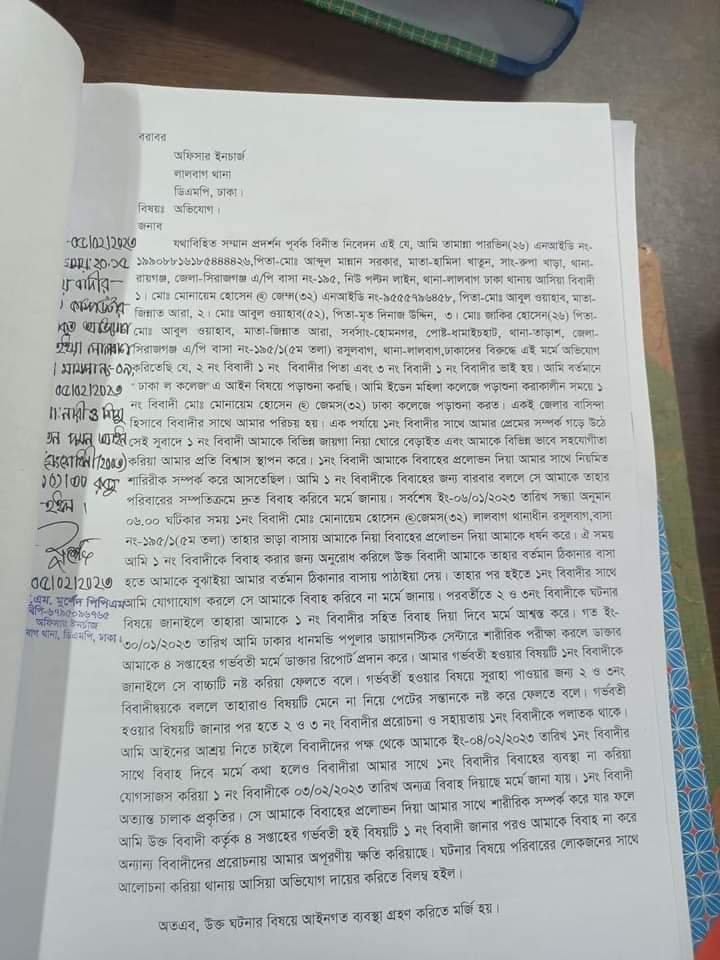 বরাবর
অফিসার ইনচার্জ
লালবাগ থানা
ডিএমপি, ঢাকা।
বিষয়ঃ অভিযোগ।
জনাব
যথাবিহিত সম্মান প্রদর্শন পূর্বক বিনীত নিবেদন এই যে, আমি তামান্না পারভিন(২৬) এনআইডি নং-
১৯৯০৮৮১৬১৮৫৪৪৪৪২৬,পিতা-মোঃ আব্দুল মান্নান সরকার, মাতা-হামিদা খাতুন, সাং-রুপা খাড়া, থানা-
রায়গঞ্জ, জেলা-সিরাজগঞ্জ এ/পি বাসা নং-১৯৫, নিউ পল্টন লাইন, থানা-লালবাগ ঢাকা থানায় আসিয়া বিবাদী
১। মোঃ মোনায়েম হোসেন @ জেমস(৩২) এনআইডি নং-৯৫৫৫৭৯৬৪৫৮, পিতা-মোঃ আবুল ওয়াহাব, মাতা-
জিন্নাত আরা, ২। মোঃ আবুল ওয়াহাব(৫২), পিতা-মৃত দিনাজ উদ্দিন, ৩। মোঃ জাকির হোসেন(২৬) পিতা-
মোঃ আবুল ওয়াহাব, মাতা-জিন্নাত আরা, সর্বসাং-হোমনগর, পোষ্ট-ধামাইচহাট, থানা-তাড়াশ, জেলা-
সিরাজগঞ্জ এ/পি বাসা নং-১৯৫/১(৫ম তলা) রসুলবাগ, থানা-লালবাগ,ঢাকাদের বিরুদ্ধে এই মর্মে অভিযোগ
করিতেছি যে, ২ নং বিবাদী ১ নং বিবাদীর পিতা এবং ৩ নং বিবাদী ১ নং বিবাদীর ভাই হয়। আমি বর্তমানে
"ঢাকা ল কলেজ" এ আইন বিষয়ে পড়াশুনা করছি। আমি ইডেন মহিলা কলেজে পড়াশুনা করাকালীন সময়ে ১
নং বিবাদী মোঃ মোনায়েম হোসেন @ জেমস(৩২) ঢাকা কলেজে পড়াশুনা করত। একই জেলার বাসিন্দা
হিসাবে বিবাদীর সাথে আমার পরিচয় হয়। এক পর্যায়ে ১নং বিবাদীর সাথে আমার প্রেমের সম্পর্ক গড়ে উঠে
সেই সুবাদে ১ নং বিবাদী আমাকে বিভিন্ন জায়গা নিয়া ঘোরে বেড়াইত এবং আমাকে বিভিন্ন ভাবে সহযোগীতা
করিয়া আমার প্রতি বিশ্বাস স্থাপন করে। ১নং বিবাদী আমাকে বিবাহের প্রলোভন দিয়া আমার সাথে নিয়মিত
শারিরীক সম্পর্ক করে আসতেছিল। আমি ১ নং বিবাদীকে বিবাহের জন্য বারবার বললে সে আমাকে তাহার
পরিবারের সম্পতিক্রমে দ্রুত বিবাহ করিবে মর্মে জানায়। সর্বশেষ ইং-০৬/০১/২০২৩ তারিখ সন্ধ্যা অনুমান
০৬.০০ ঘটিকার সময় ১নং বিবাদী মোঃ মোনায়েম হোসেন @জেমস(৩২) লালবাগ থানাধীন রসুলবাগ,বাসা
নং-১৯৫/১(৫ম তলা) তাহার ভাড়া বাসায় আমাকে নিয়া বিবাহের প্রলোভন দিয়া আমাকে ধর্ষন করে। ঐ সময়
আমি ১ নং বিবাদীকে বিবাহ করার জন্য অনুরোধ করিলে উক্ত বিবাদী আমাকে তাহার বর্তমান ঠিকানার বাসা
হতে আমাকে বুঝাইয়া আমার বর্তমান ঠিকানার বাসায় পাঠাইয়া দেয়। তাহার পর হইতে ১নং বিবাদীর সাথে
আমি যোগাযোগ করলে সে আমাকে বিবাহ করিবে না মর্মে জানায়। পরবর্তীতে ২ ও ৩নং বিবাদীকে ঘটনার
বিষয়ে জানাইলে তাহারা আমাকে ১ নং বিবাদীর সহিত বিবাহ দিয়া দিবে মর্মে আশ্বস্ত করে। গত ইং-
৩০/০১/২০২৩ তারিখ আমি ঢাকার ধানমন্ডি পপুলার ডায়াগনস্টিক সেন্টারে শারিরীক পরীক্ষা করলে ডাক্তার
আমাকে ৪ সপ্তাহের গর্ভবতী মর্মে ডাক্তার রিপোর্ট প্রদান করে। আমার গর্ভবতী হওয়ার বিষয়টি ১নং বিবাদীকে
জানাইলে সে বাচ্চাটি নষ্ট করিয়া ফেলতে বলে। গর্ভবতী হওয়ার বিষয়ে সুরাহা পাওয়ার জন্য ২ ও ৩নং
বিবাদীদ্বয়কে বললে তাহারাও বিষয়টি মেনে না নিয়ে পেটের সন্তানকে নষ্ট করে ফেলতে বলে। গর্ভবতী
হওয়ার বিষয়টি জানার পর হতে ২ ও ৩ নং বিবাদীর প্ররোচনা ও সহায়তায় ১নং বিবাদীকে পলাতক থাকে।
আমি আইনের আশ্রয় নিতে চাইলে বিবাদীদের পক্ষ থেকে আমাকে ইং-০৪/০২/২০২৩ তারিখ ১নং বিবাদীর
সাথে বিবাহ দিবে মর্মে কথা হলেও বিবাদীরা আমার সাথে ১নং বিবাদীর বিবাহের ব্যবস্থা না করিয়া
যোগসাজস করিয়া ১ নং বিবাদীকে ০৩/০২/২০২৩ তারিখ অন্যত্র বিবাহ দিয়াছে মর্মে জানা যায়। ১নং বিবাদী
অত্যান্ত চালাক প্রকৃতির। সে আমাকে বিবাহের প্রলোভন দিয়া আমার সাথে শারীরিক সম্পর্ক করে যার ফলে
আমি উক্ত বিবাদী কর্তৃক ৪ সপ্তাহের গর্ভবতী হই বিষয়টি ১ নং বিবাদী জানার পরও আমাকে বিবাহ না করে
অন্যান্য বিবাদীদের প্ররোচনায় আমার অপূরণীয় ক্ষতি করিয়াছে। ঘটনার বিষয়ে পরিবারের লোকজনের সাথে
আলোচনা করিয়া থানায় আসিয়া অভিযোগ দায়ের করিতে বিলম্ব হইল।
অতএব, উক্ত ঘটনার বিষয়ে আইনগত ব্যবস্থা গ্রহণ করিতে মর্জি হয়।
০৫/০২/২০২৩
বাদীর
কম্পিউটার
০৫/০২/২০২৩
নারী ও শিশু
দমন আইন
০৫/০২/২০২৩
এম. মুর্শেদ পিপিএম
বিপি-৬৭৯৫০৯৬৭৬৫
অফিসার ইনচার্জ
বাগ থানা, ডিএমপি, ঢাকা।